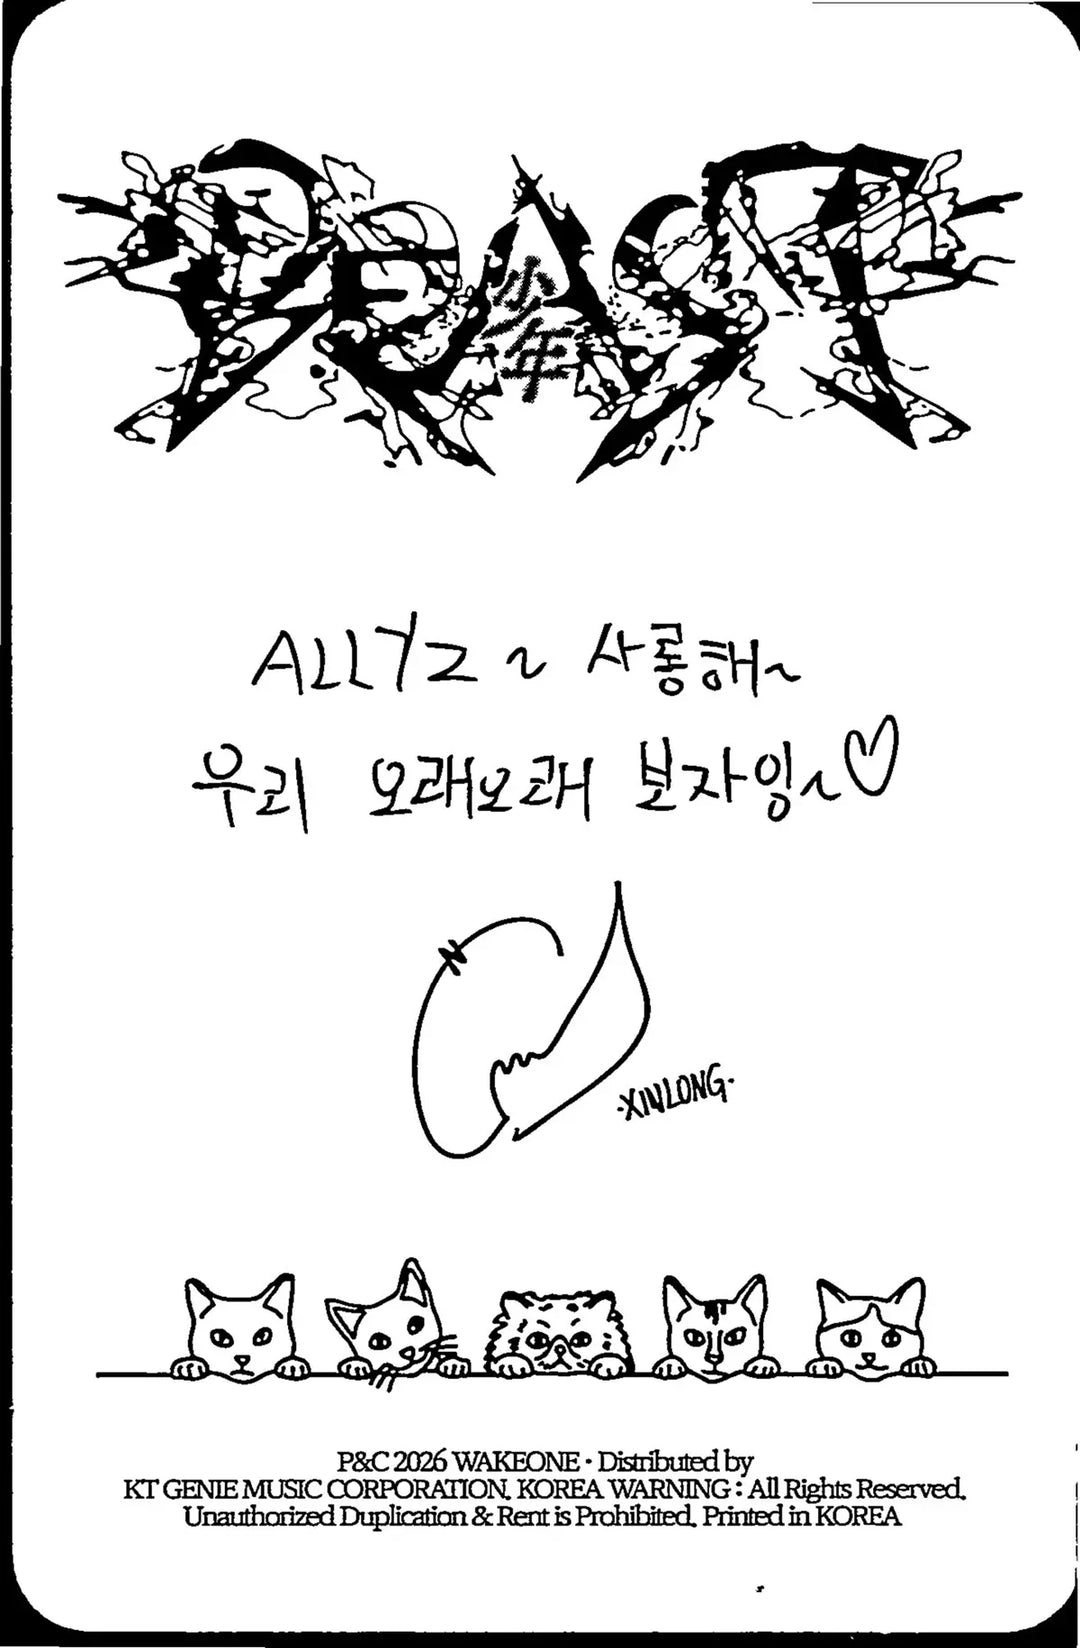 BEAST
少年
ALLYZ ~ 사롱해~
우리 오래오래 보자잉~♡
·XINLONG·
P&C 2026 WAKEONE · Distributed by
KT GENIE MUSIC CORPORATION. KOREA WARNING : All Rights Reserved.
Unauthorized Duplication & Rent is Prohibited. Printed in KOREA